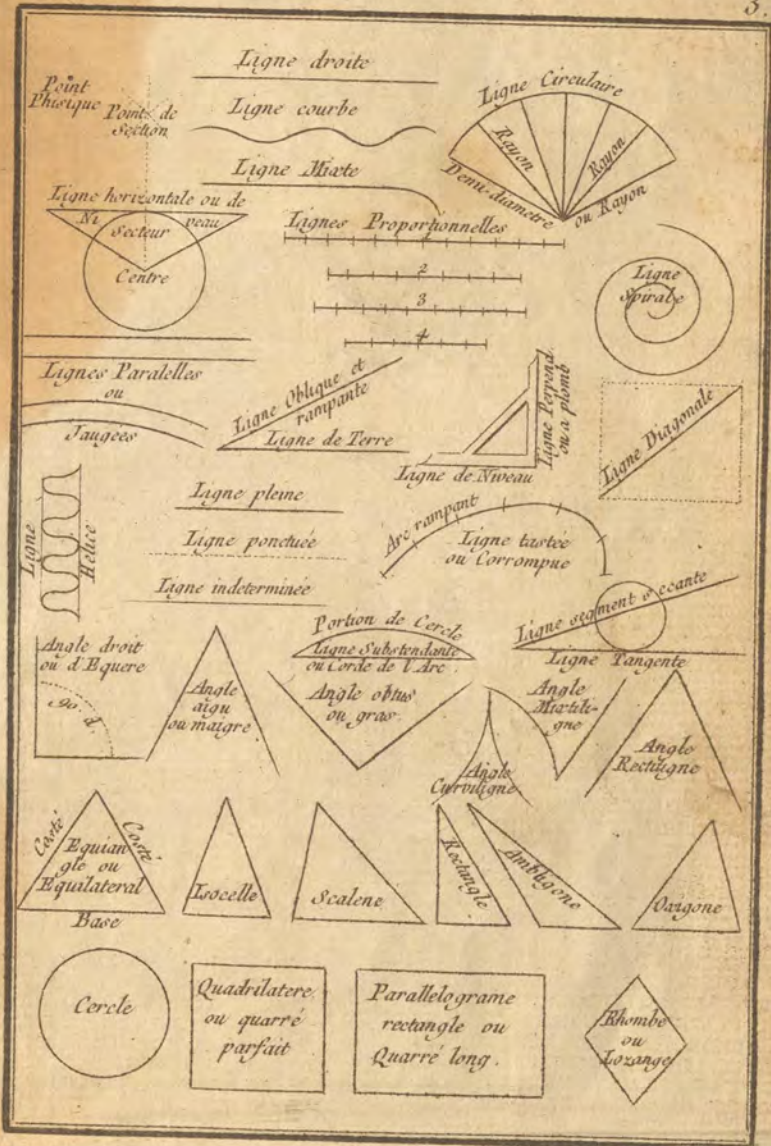 3.
Ligne droite
Point
Phisique
Point de
Section
Ligne courbe
Ligne Circulaire
Rayon
Rayon
Demi-diametre
ou Rayon
Ligne Mixte
Ligne horizontale ou de
Ni
veau
Secteur
Centre
Lignes Proportionnelles
2
3
4
Ligne
Spirale
Lignes Paralelles
ou
Jaugées
Ligne Oblique et
rampante
Ligne de Terre
Ligne Perpend.
ou a plomb
Ligne de Niveau
Ligne Diagonale
Ligne
Helice
Ligne pleine
Ligne ponctuée
Ligne indeterminée
Arc rampant
Ligne tastée
ou Corrompue
Portion de Cercle
Ligne Substendante
ou Corde de l'Arc
Ligne segment secante
Ligne Tangente
Angle droit
ou d'Equere
90. d.
Angle
aigu
ou maigre
Angle obtus
ou gras
Angle
Mixtili-
gne
Angle
Curviligne
Angle
Rectiligne
Costé
Costé
Equian
gle ou
Equilateral
Base
Isocelle
Scalene
Rectangle
Ambligone
Oxigone
Cercle
Quadrilatere
ou quarré
parfait
Parallelograme
rectangle ou
Quarré long.
Rhombe
ou
Lozange